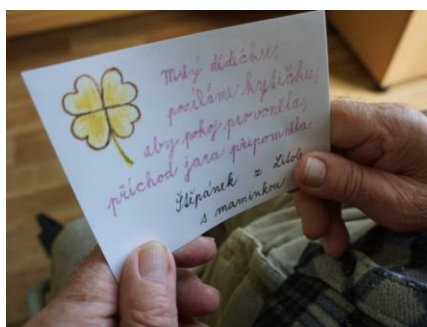 Milý dědečku,
posíláme kytičku,
aby pokoj provoněla,
příchod jara připomněla.
Štěpánek z Litole
s maminkou